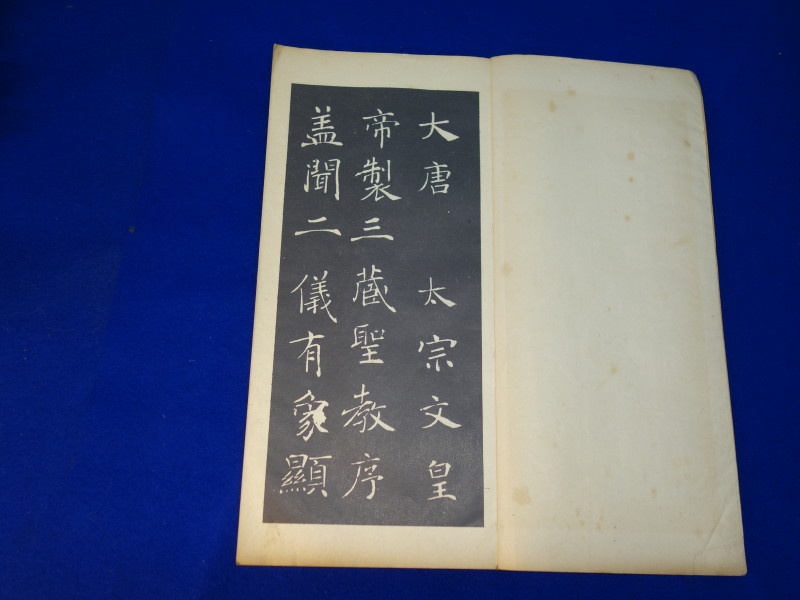 大唐 太宗文皇
帝製三藏聖教序
盖聞二儀有象顯